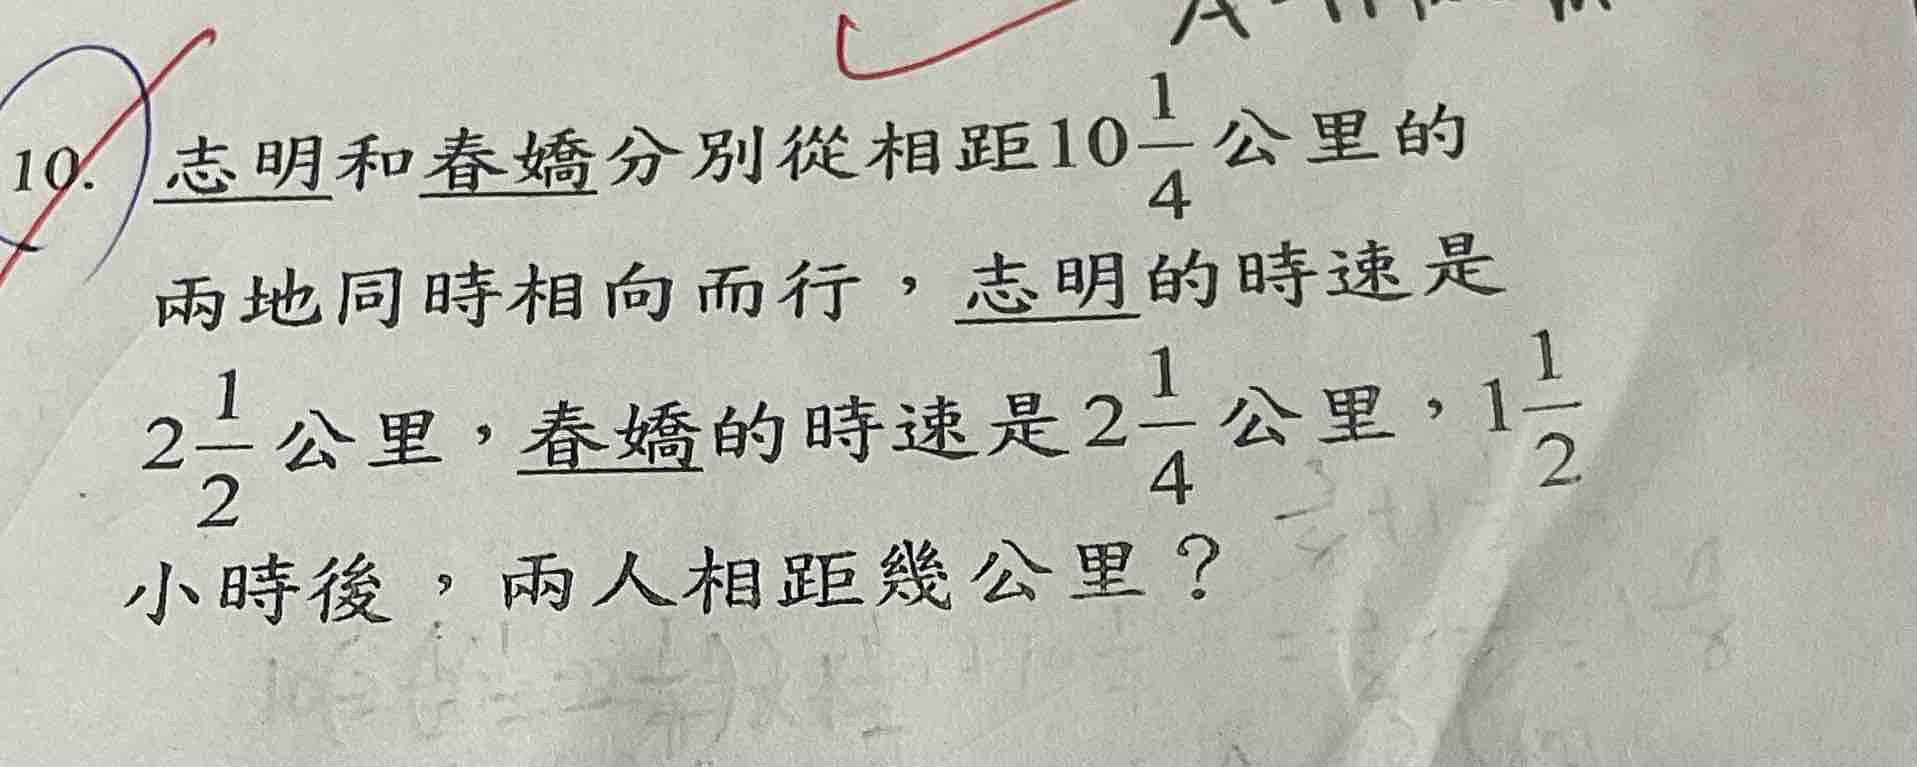 10. 志明和春嬌分別從相距10 1/4 公里的
兩地同時相向而行，志明的時速是
2 1/2 公里，春嬌的時速是 2 1/4 公里，1 1/2
小時後，兩人相距幾公里？